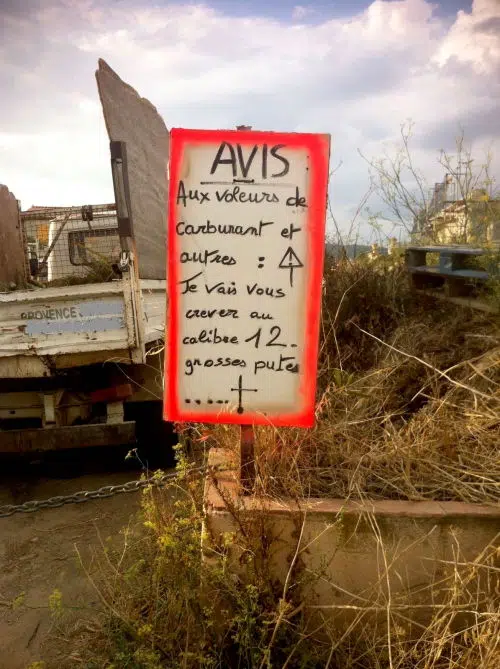 AVIS
Aux voleurs de
Carburant et
autres :
Je vais vous
crever au
calibre 12.
grosses putes
.....
PROVENCE